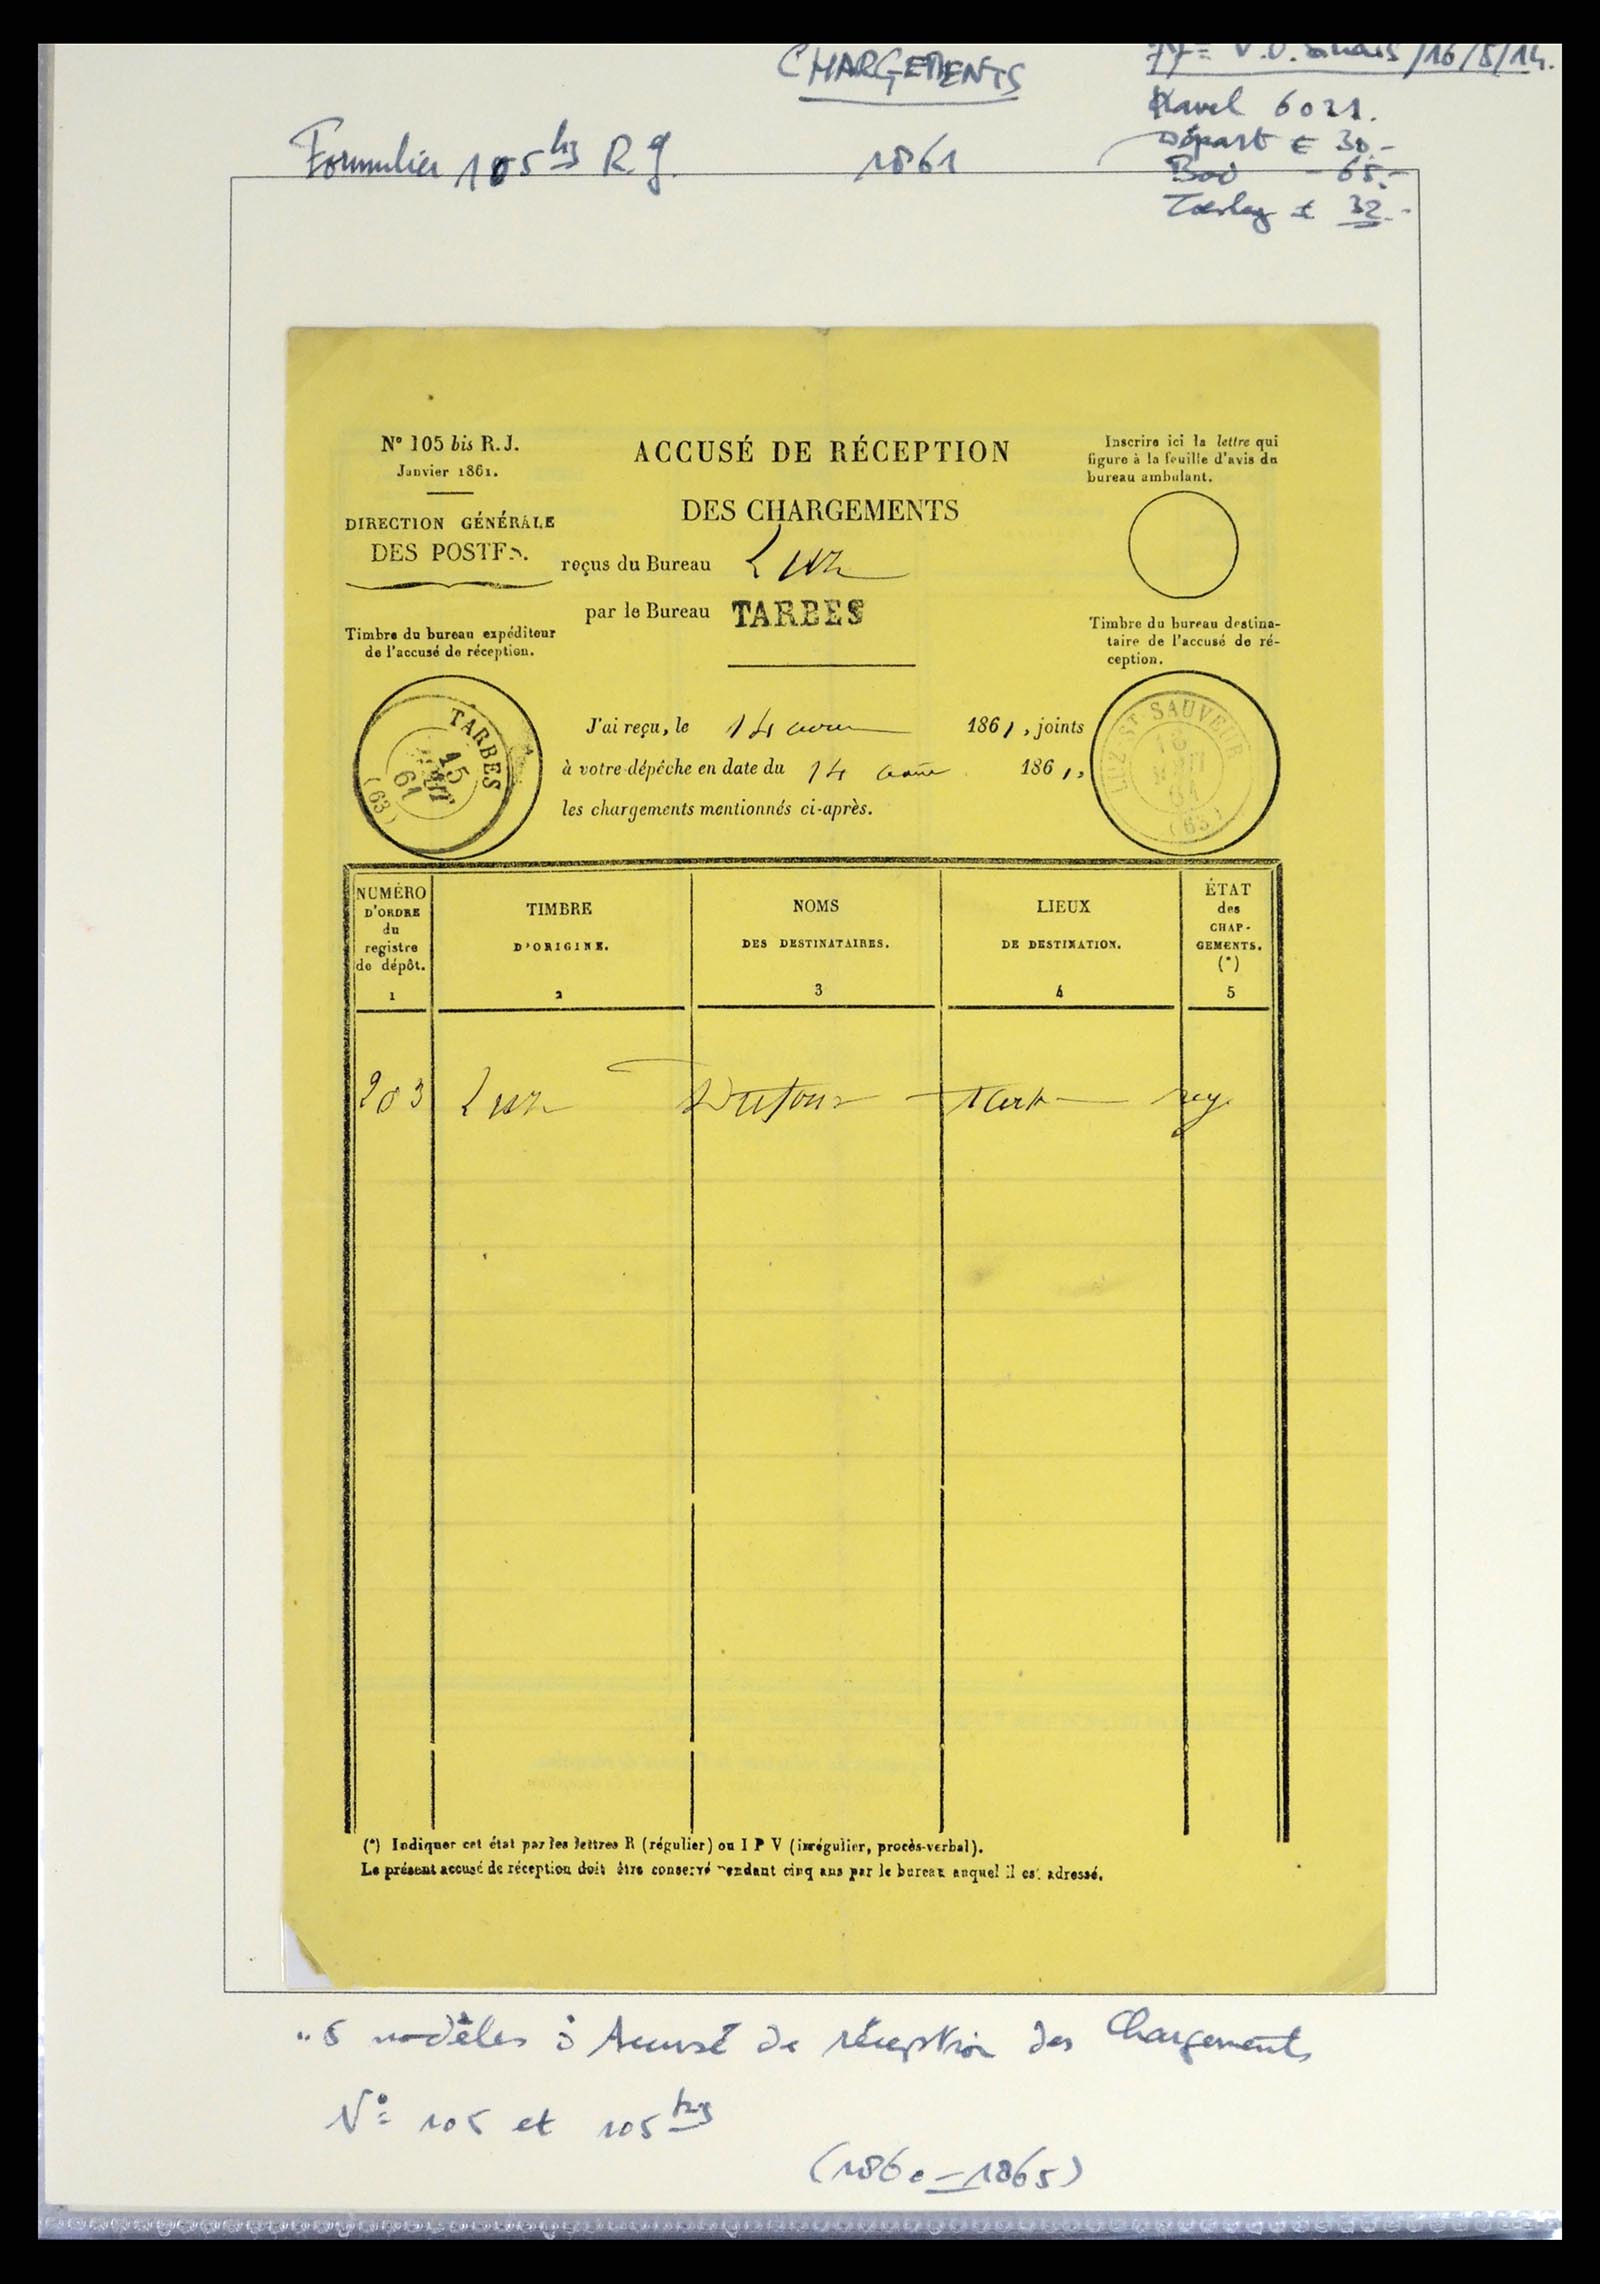 CHARGEMENTS
/16/5/14.
Kavel 6021.
Départ € 30.-
Bod - 65.-
Toeslag ± 32.-
Formulier 105 bis R.J. 1861
N° 105 bis R.J.
Janvier 1861.
DIRECTION GÉNÉRALE
DES POSTES.
Timbre du bureau expéditeur
de l'accusé de réception.
ACCUSÉ DE RÉCEPTION
DES CHARGEMENTS
reçus du Bureau Luz
par le Bureau TARBES
Inscrire ici la lettre qui
figure à la feuille d'avis du
bureau ambulant.
Timbre du bureau destina-
taire de l'accusé de ré-
ception.
TARBES
15
AOUT
61
(63)
J'ai reçu, le 14 aout 1861, joints
à votre dépêche en date du 14 aout 1861,
les chargements mentionnés ci-après.
LUZ-ST-SAUVEUR
AOUT
61
(63)
NUMÉRO
D'ORDRE
du
registre
de dépôt.
1
TIMBRE
D'ORIGINE.
2
NOMS
DES DESTINATAIRES.
3
LIEUX
DE DESTINATION.
4
ÉTAT
des
CHAR-
GEMENTS.
(*)
5
203 Luz Dufour Tarb reg
(*) Indiquer cet état par les lettres R (régulier) ou I P V (irrégulier, procès-verbal).
Le présent accusé de réception doit être conservé pendant cinq ans par le bureau auquel il est adressé.
5 modèles d'Accusé de réception des Chargements
N° 105 et 105 bis
(1860-1865)